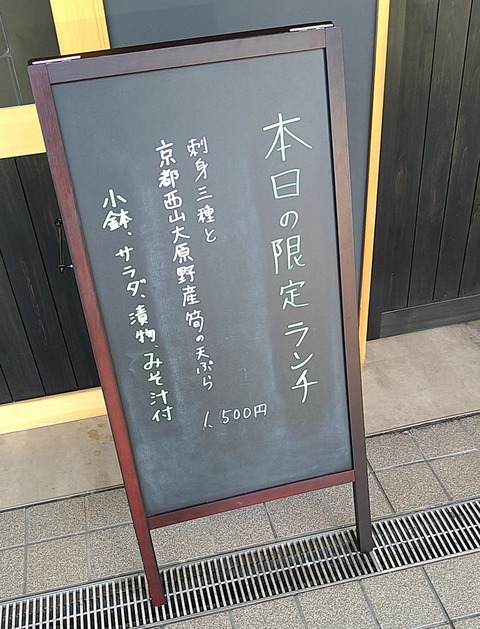 本日の限定ランチ
刺身三種と
京都西山大原野産筍の天ぷら
1,500円
小鉢、サラダ、漬物、みそ汁付